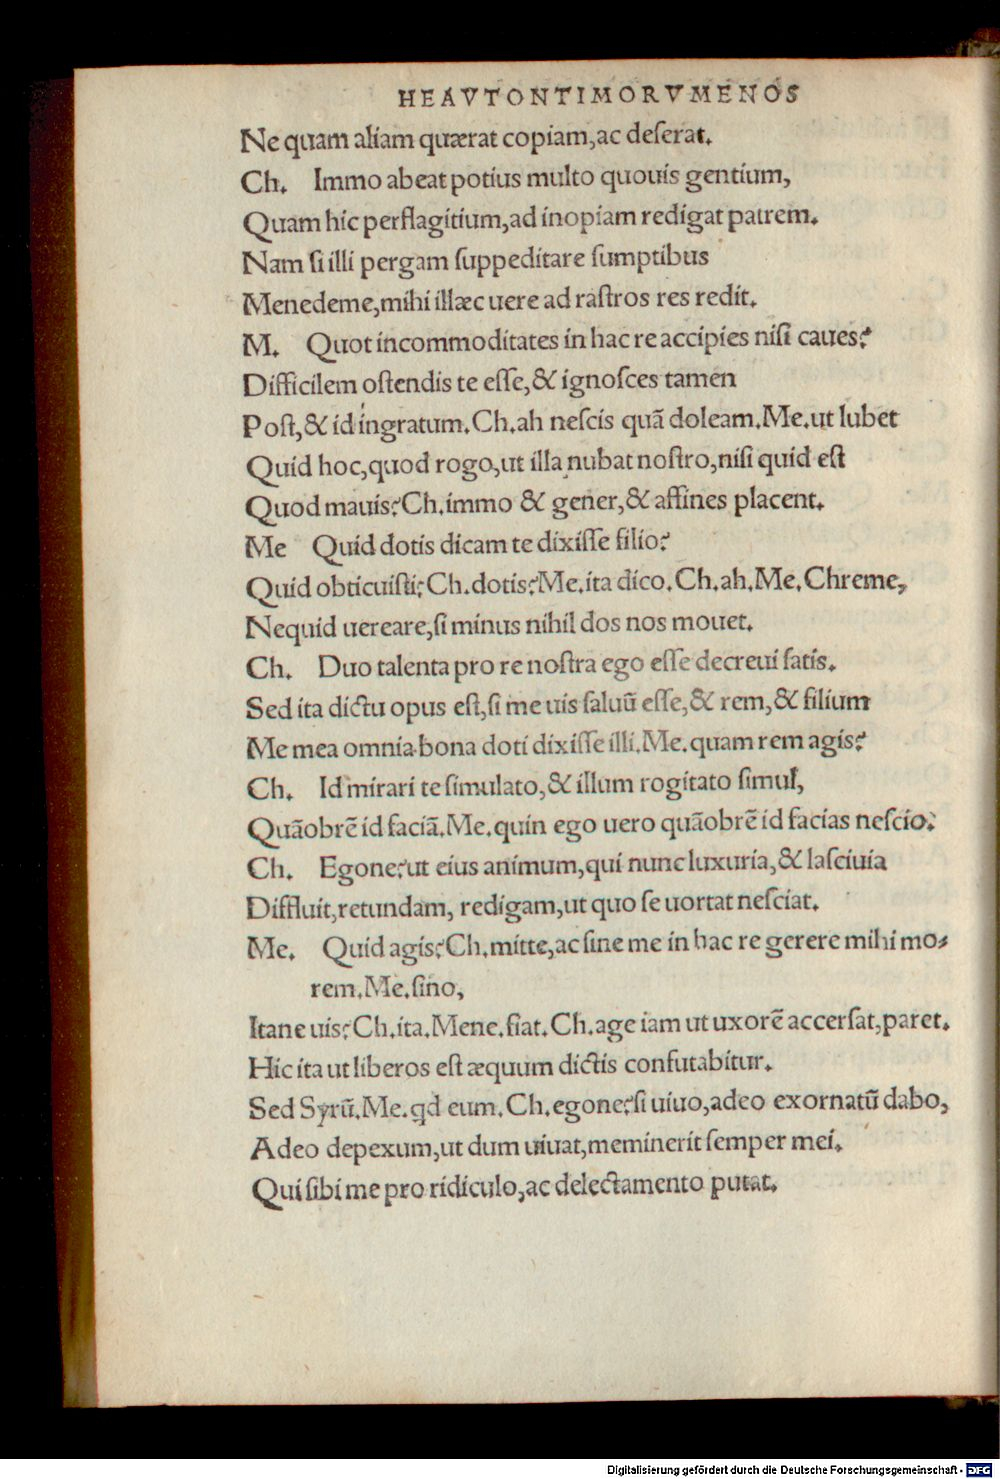 HEAVTONTIMORVMENOS
Ne quam aliam quærat copiam,ac deſerat.
Ch. Immo abeat potius multo quouis gentium,
Quam hic perflagitium,ad inopiam redigat patrem.
Nam ſi illi pergam ſuppeditare ſumptibus
Menedeme,mihi illæc uere ad raſtros res redit.
M. Quot incommoditates in hac re accipies niſi caues?
Difficilem oſtendis te eſſe,& ignoſces tamen
Poſt,& id ingratum.Ch.ah neſcis quã doleam.Me.ut lubet
Quid hoc,quod rogo,ut illa nubat noſtro,niſi quid eſt
Quod mauis?Ch.immo & gener,& affines placent.
Me Quid dotis dicam te dixiſſe filio?
Quid obticuiſti?Ch.dotis?Me.ita dico.Ch.ah.Me.Chreme,
Nequid uereare,ſi minus nihil dos nos mouet.
Ch. Duo talenta pro re noſtra ego eſſe decreui ſatis.
Sed ita dictu opus eſt,ſi me uis ſaluũ eſſe,& rem,& filium
Me mea omnia bona doti dixiſſe illi.Me.quam rem agis?
Ch. Id mirari te ſimulato,& illum rogitato ſimul,
Quãobrẽ id faciã.Me.quin ego uero quãobrẽ id facias neſcio?
Ch. Egone?ut eius animum,qui nunc luxuria,& laſciuia
Diffluit,retundam, redigam,ut quo ſe uortat neſciat.
Me. Quid agis?Ch.mitte,ac ſine me in hac re gerere mihi mo⸗
rem.Me.ſino,
Itane uis?Ch.ita.Mene.fiat.Ch.age iam ut uxorẽ accerſat,paret.
Hic ita ut liberos eſt æquum dictis confutabitur.
Sed Syrũ.Me.qd eum.Ch.egone?ſi uiuo,adeo exornatũ dabo,
Adeo depexum,ut dum uiuat,meminerit ſemper mei.
Qui ſibi me pro ridiculo,ac delectamento putat.
Digitalisierung gefördert durch die Deutsche Forschungsgemeinschaft - DFG